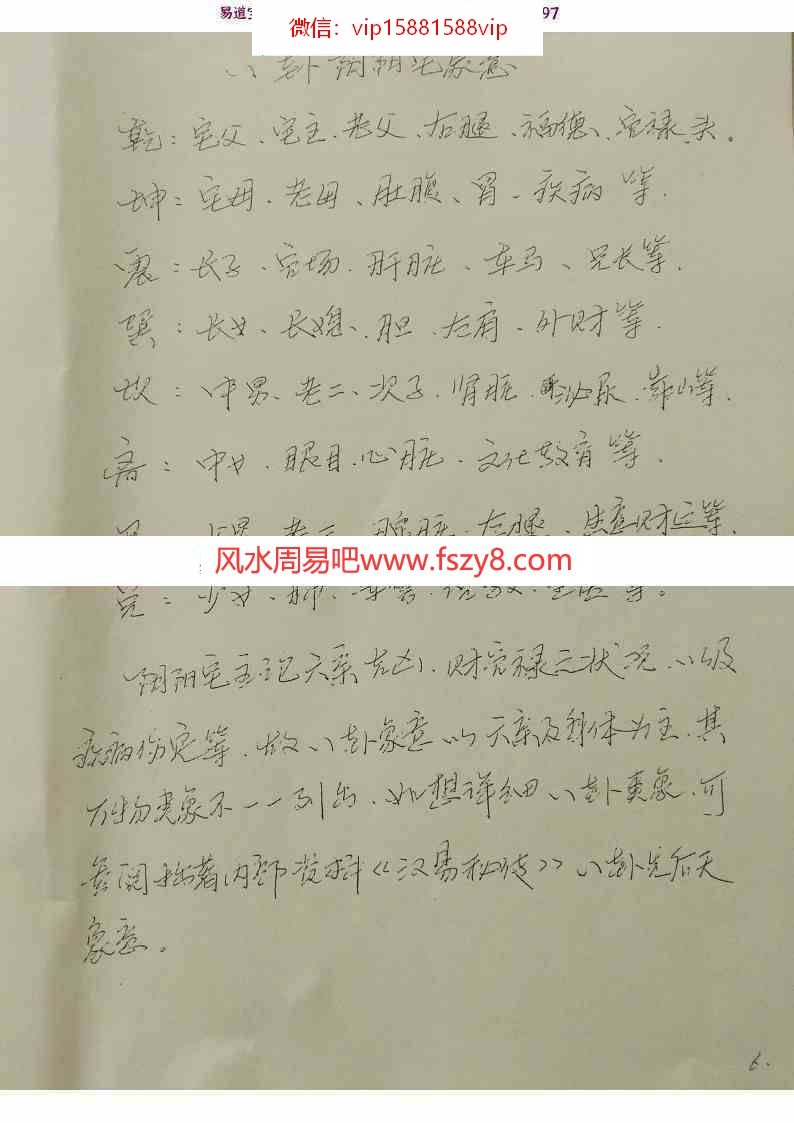 易道
97
微信：vip15881588vip
八卦阴阳宅象意
乾：宅父、宅主、老父、右腿、福德、官禄、头。
坤：宅母、老母、肚腹、胃、疾病等.
震：长子、官场、肝脏、车马、兄长等.
巽：长女、长媳、胆、左肩、外财等.
坎：中男、老二、次子、肾脏、泌尿、靠山等.
离：中女、眼目、心脏、文化教育等.
少男、老三、脾脏、左腿、生意财运等.
风水周易吧www.fszy8.com
兑：少女、肺、等。
阴阳宅主记六亲吉凶、财官禄三状况、以及
疾病伤灾等，故八卦象意以六亲及身体为主，其
万物类象不一一列出，如想详细八卦类象，可
参阅拙著内部资料《汉易秘传》八卦先后天
象意。
6.